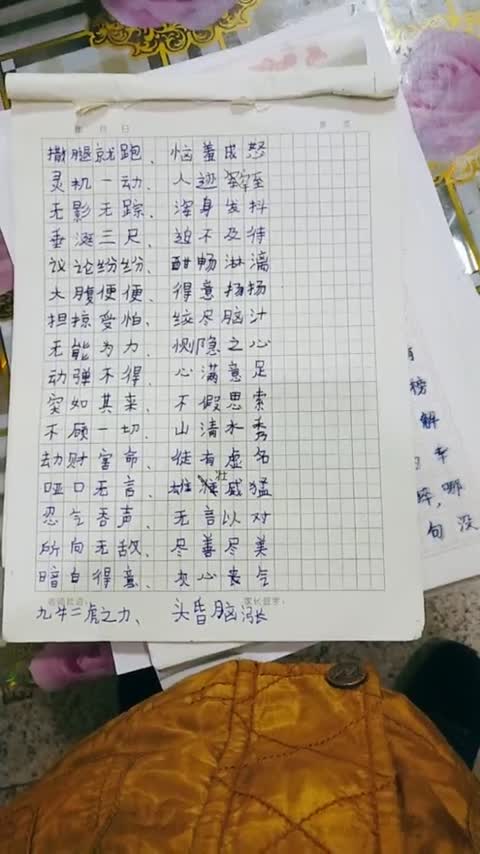 年 月 日
撒腿就跑、恼羞成怒
灵机一动、人迹罕至
无影无踪、浑身发抖
垂涎三尺、迫不及待
议论纷纷、酣畅淋漓
大腹便便、得意扬扬
担惊受怕、绞尽脑汁
无能为力、恻隐之心
动弹不得、心满意足
突如其来、不假思索
不顾一切、山清水秀
劫财害命、徒有虚名
哑口无言、雄壮威猛
忍气吞声、无言以对
所向无敌、尽善尽美
暗自得意、灰心丧气
家长签字：
九牛二虎之力、头昏脑涨
榜
解
幸
哪
句 没